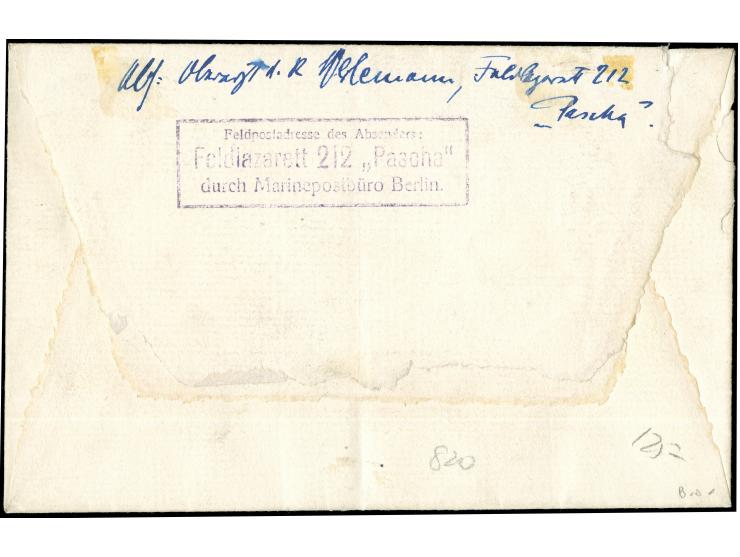 Abs: Oberarzt d. R. Feldlazarett 212
„Pascha“.
Feldpostadresse des Absenders:
Feldlazarett 212 „Pascha“
durch Marinepostbüro Berlin.
820